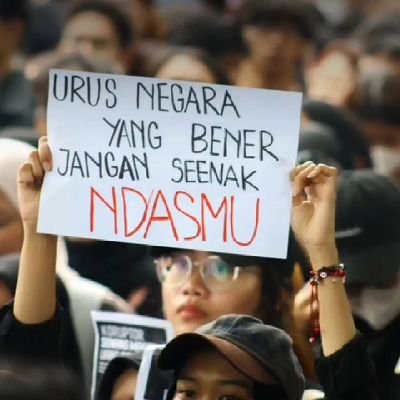 URUS NEGARA
YANG BENER
JANGAN SEENAK
NDASMU